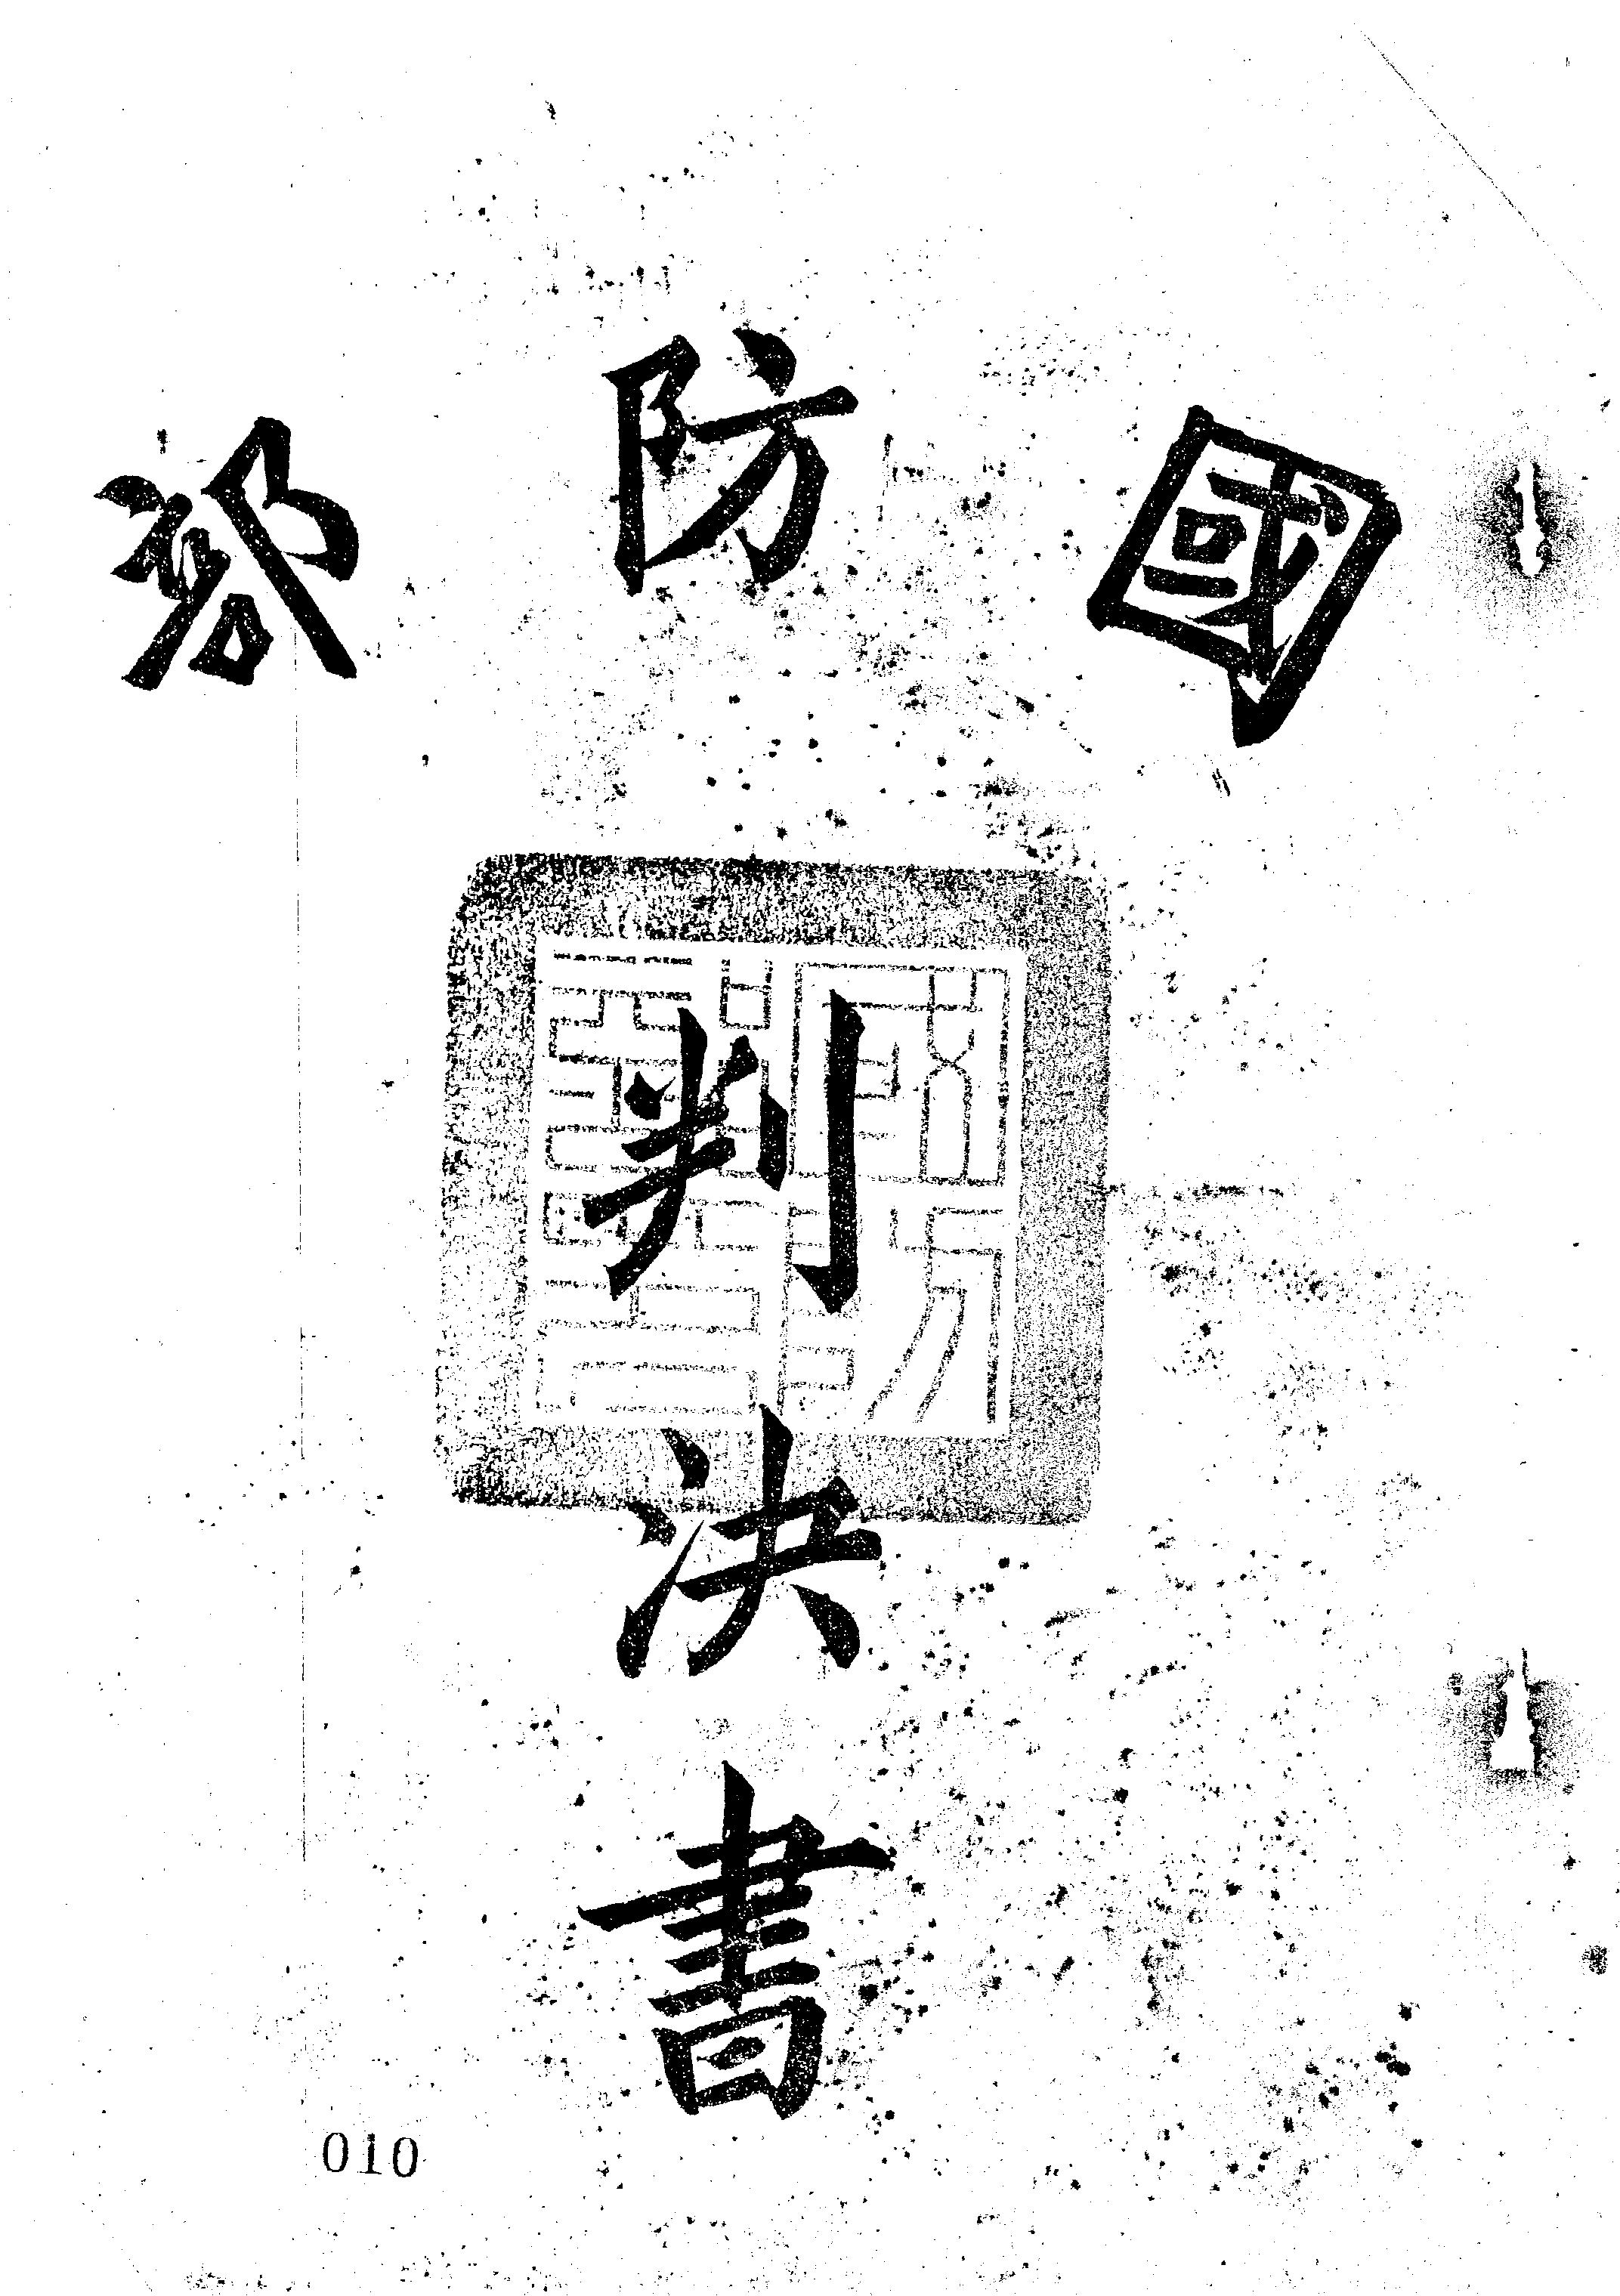 國防部
判決書
010